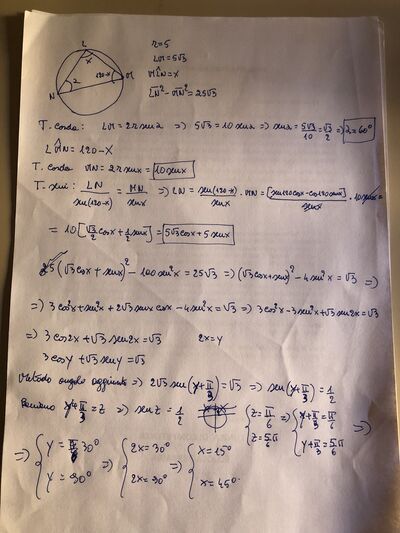 L
x
2
120-x
M
N
r=5
LM=5√3
MLN=x
LN²-MN²=25√3
T. corda: LM=2r sin α => 5√3=10 sin α => sin α=5√3/10=√3/2 => α=60°
LMN=120-X
T. corda MN=2r sin x=10 sin x
T. seni: LN/sen(120-x)=MN/sin x => LN=sen(120-x)/sin x · MN=[sin120cosx-cos120sinx]/sin x · 10 sin x=
=10[√3/2 cosx+1/2 sinx]=5√3cosx+5 sinx
25(√3cosx+sinx)²-100sin²x=25√3 => (√3cosx+sinx)²-4sin²x=√3 =>
=> 3cos²x+sin²x+2√3 sinx cosx-4sin²x=√3 => 3cos²x-3sin²x+√3 sin2x=√3
=> 3cos2x+√3 sin2x=√3 2x=y
3cosy+√3 seny=√3
Metodo angolo aggiunto => 2√3 sen(y+π/3)=√3 => sen(y+π/3)=1/2
y+π/3=z => sen z=1/2 {z=π/6 z=5/6π => {y+π/3=π/6 y+π/3=5/6π =>
=> {y=30° y=90° => {2x=30° 2x=90° => {x=15° x=45°